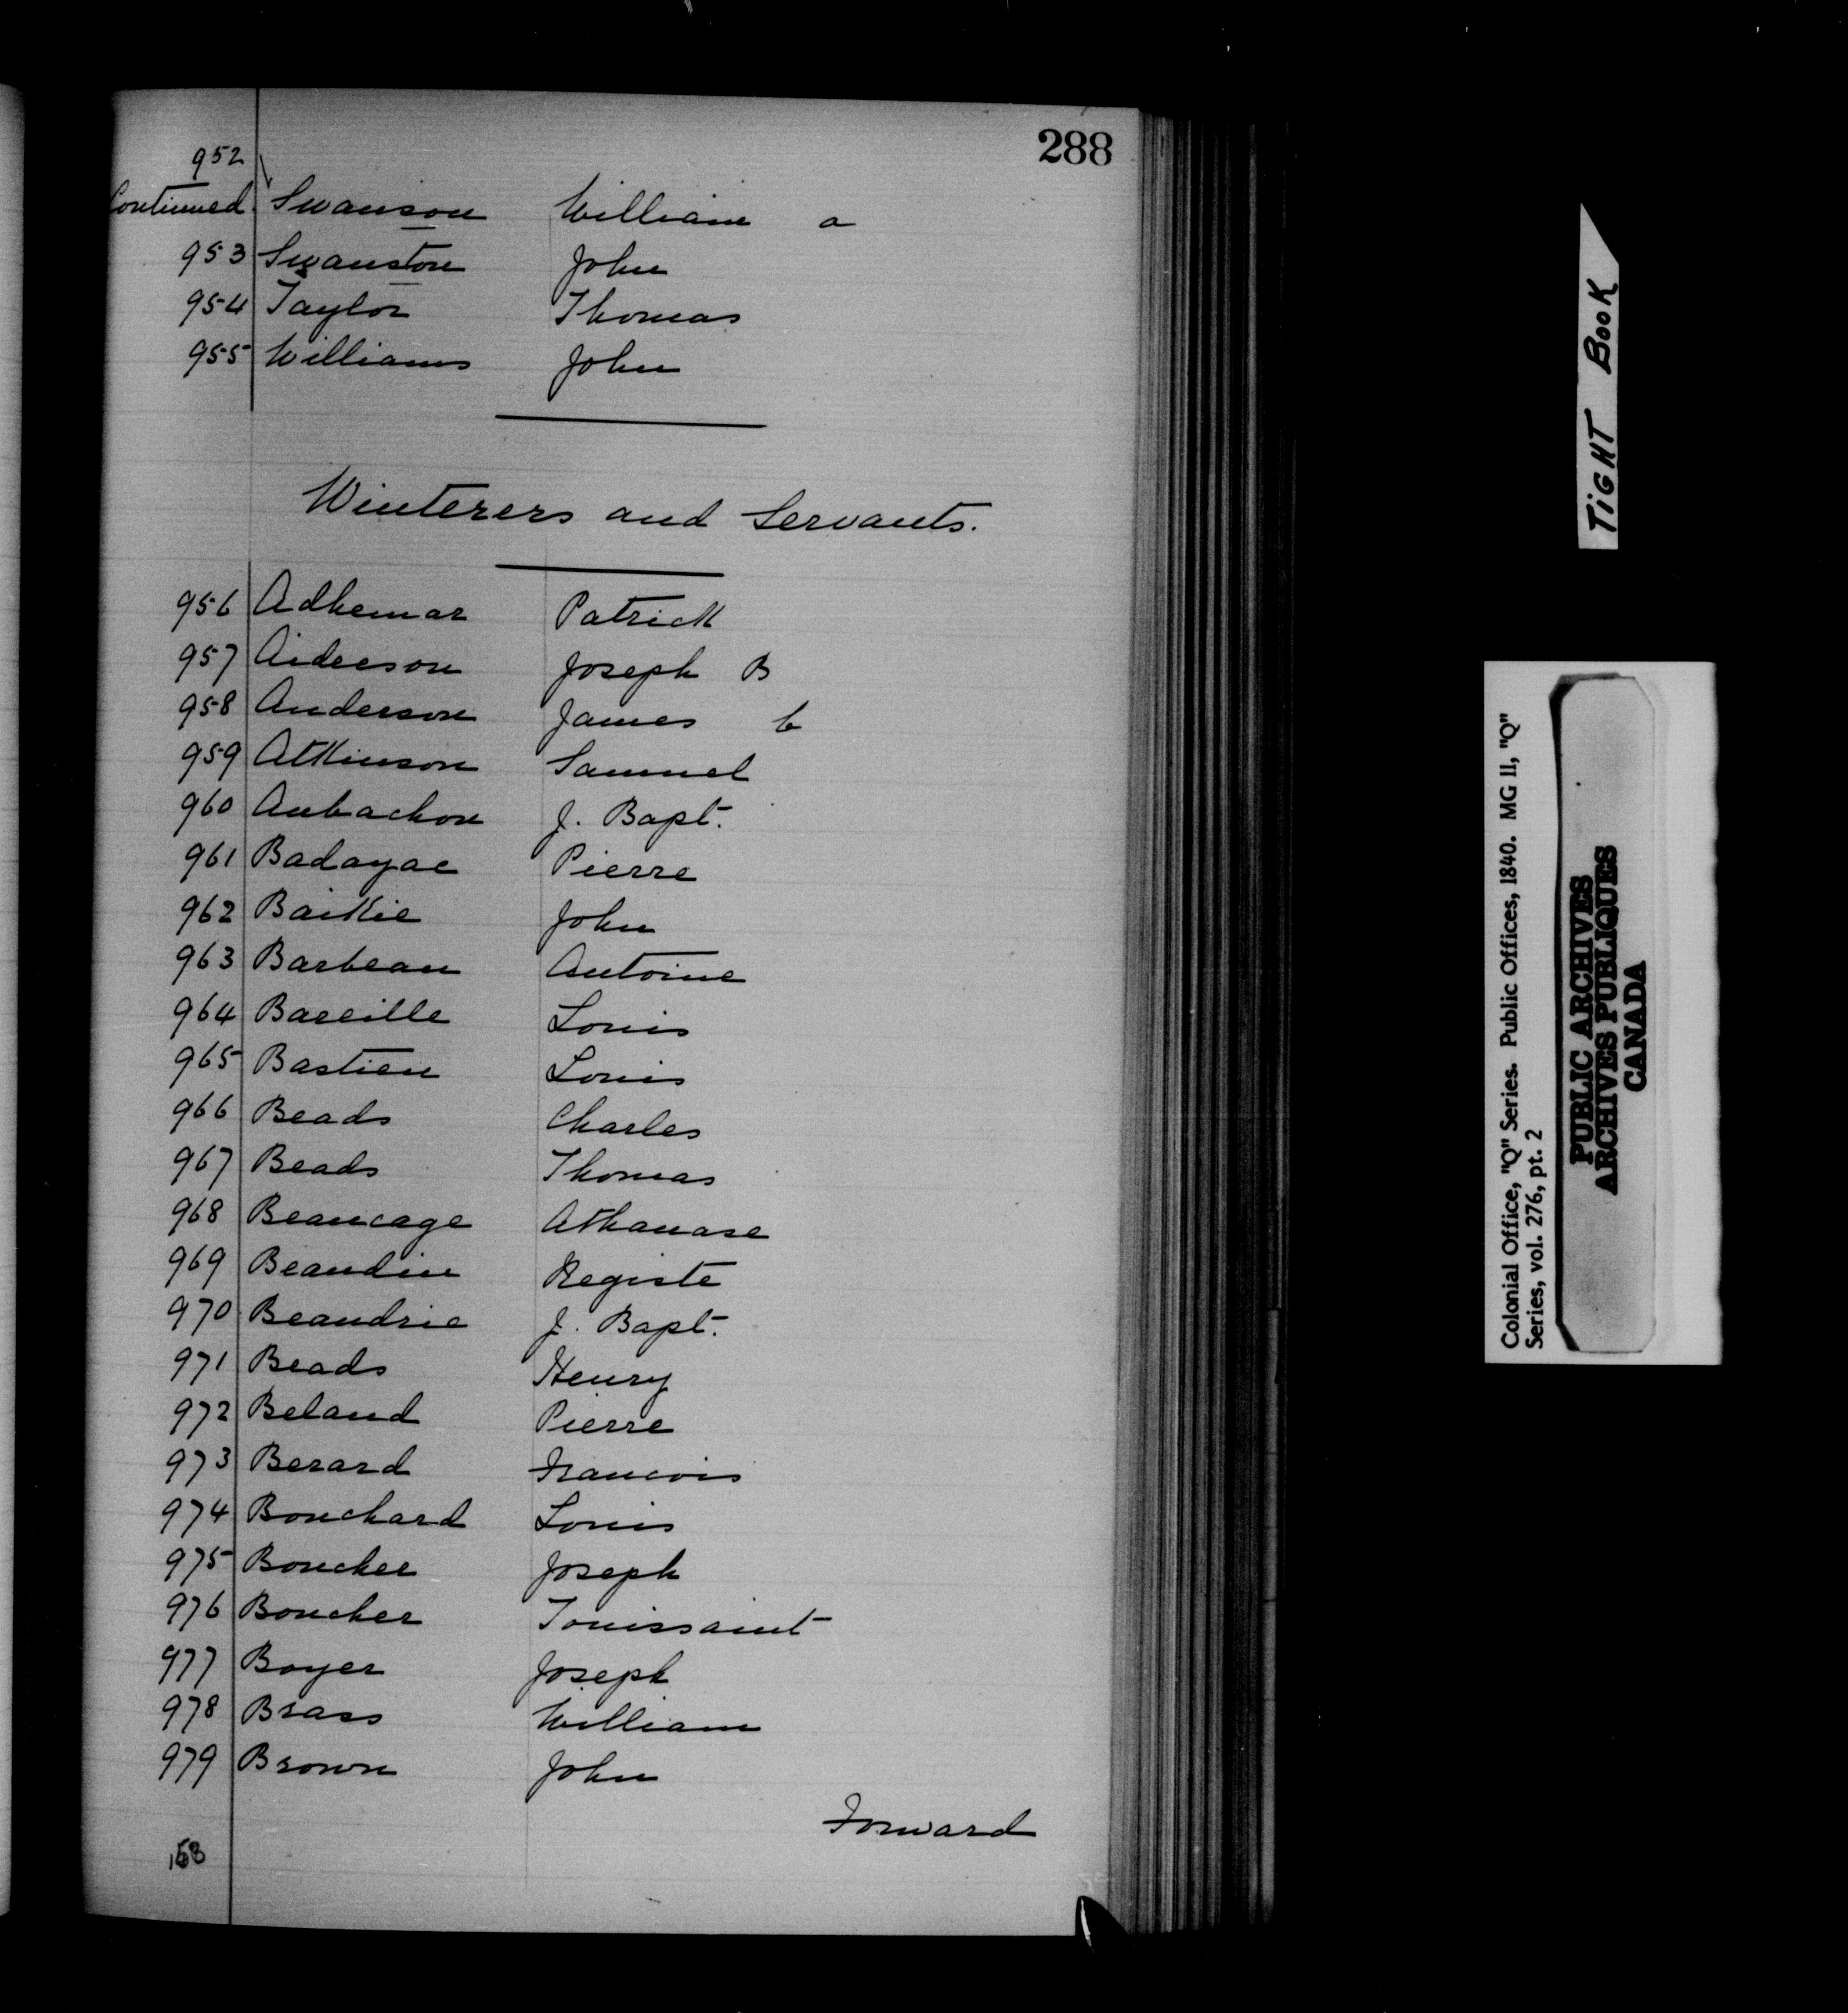 288
952
Continued Swanson William a
953 Swanston John
954 Taylor Thomas
955 Williams John
Winterers and Servants.
956 Adhemar Patrick
957 Aideeson Joseph B
958 Anderson James b
959 Atkinson Samuel
960 Aubachon J. Bapt.
961 Badayac Pierre
962 Baikie John
963 Barbeau Antoine
964 Bareille Louis
965 Bastien Louis
966 Beads Charles
967 Beads Thomas
968 Beaucage Athanase
969 Beaudin Registe
970 Beaudrie J. Bapt.
971 Beads Henry
972 Beland Pierre
973 Berard Francois
974 Bouchard Louis
975 Boucher Joseph
976 Boucher Touissaint
977 Boyer Joseph
978 Brass William
979 Brown John
Forward
TIGHT BOOK
Colonial Office, "Q" Series. Public Offices, 1840. MG II, "Q"
Series, vol. 276, pt. 2
PUBLIC ARCHIVES
ARCHIVES PUBLIQUES
CANADA